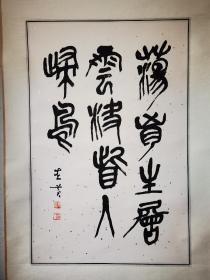 蕩胸生層
雲決眥入
歸鳥